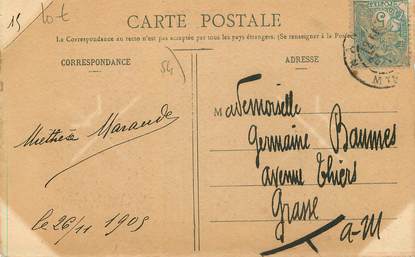 15 tot
CARTE POSTALE
La Correspondance au recto n'est pas acceptée par tous les pays étrangers. (Se renseigner à la Poste)
CORRESPONDANCE
ADRESSE
54
Mademoiselle
Germaine Baumes
avenue Thiers
Grasse
A-M
Marande
le 26/11 1905